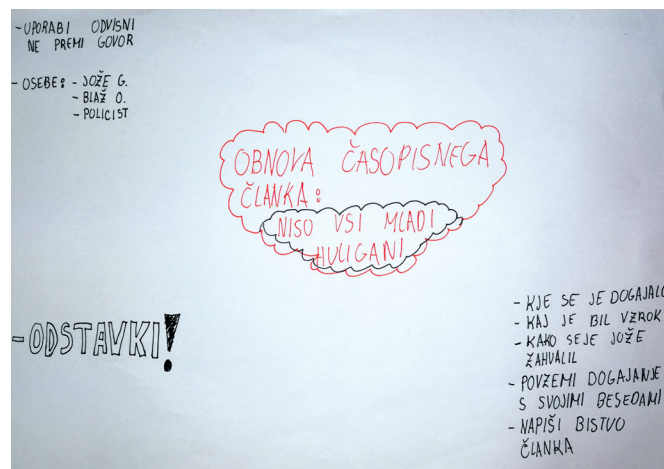 -UPORABI ODVISNI
NE PREMI GOVOR
- OSEBE: - JOŽE G.
- BLAŽ O.
- POLICIST
OBNOVA ČASOPISNEGA
ČLANKA:
NISO VSI MLADI
HULIGANI
-ODSTAVKI!
- KJE SE JE DOGAJALO
- KAJ JE BIL VZROK
- KAKO SEJE JOŽE
ZAHVALIL
- POVZEMI DOGAJANJE
S SVOJIMI BESEDAMI
- NAPIŠI BISTVO
ČLANKA